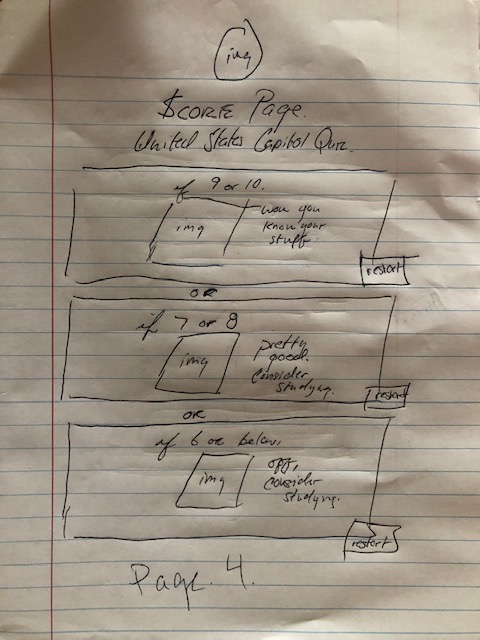 img
Score Page.
United States Capitol Quiz.
if 9 or 10.
img
wow you
know your
stuff
restart
OR
if 7 or 8
img
pretty
good.
Consider
studying.
restart
OR
if 6 or below.
img
off,
consider
studying.
restart
Page. 4.